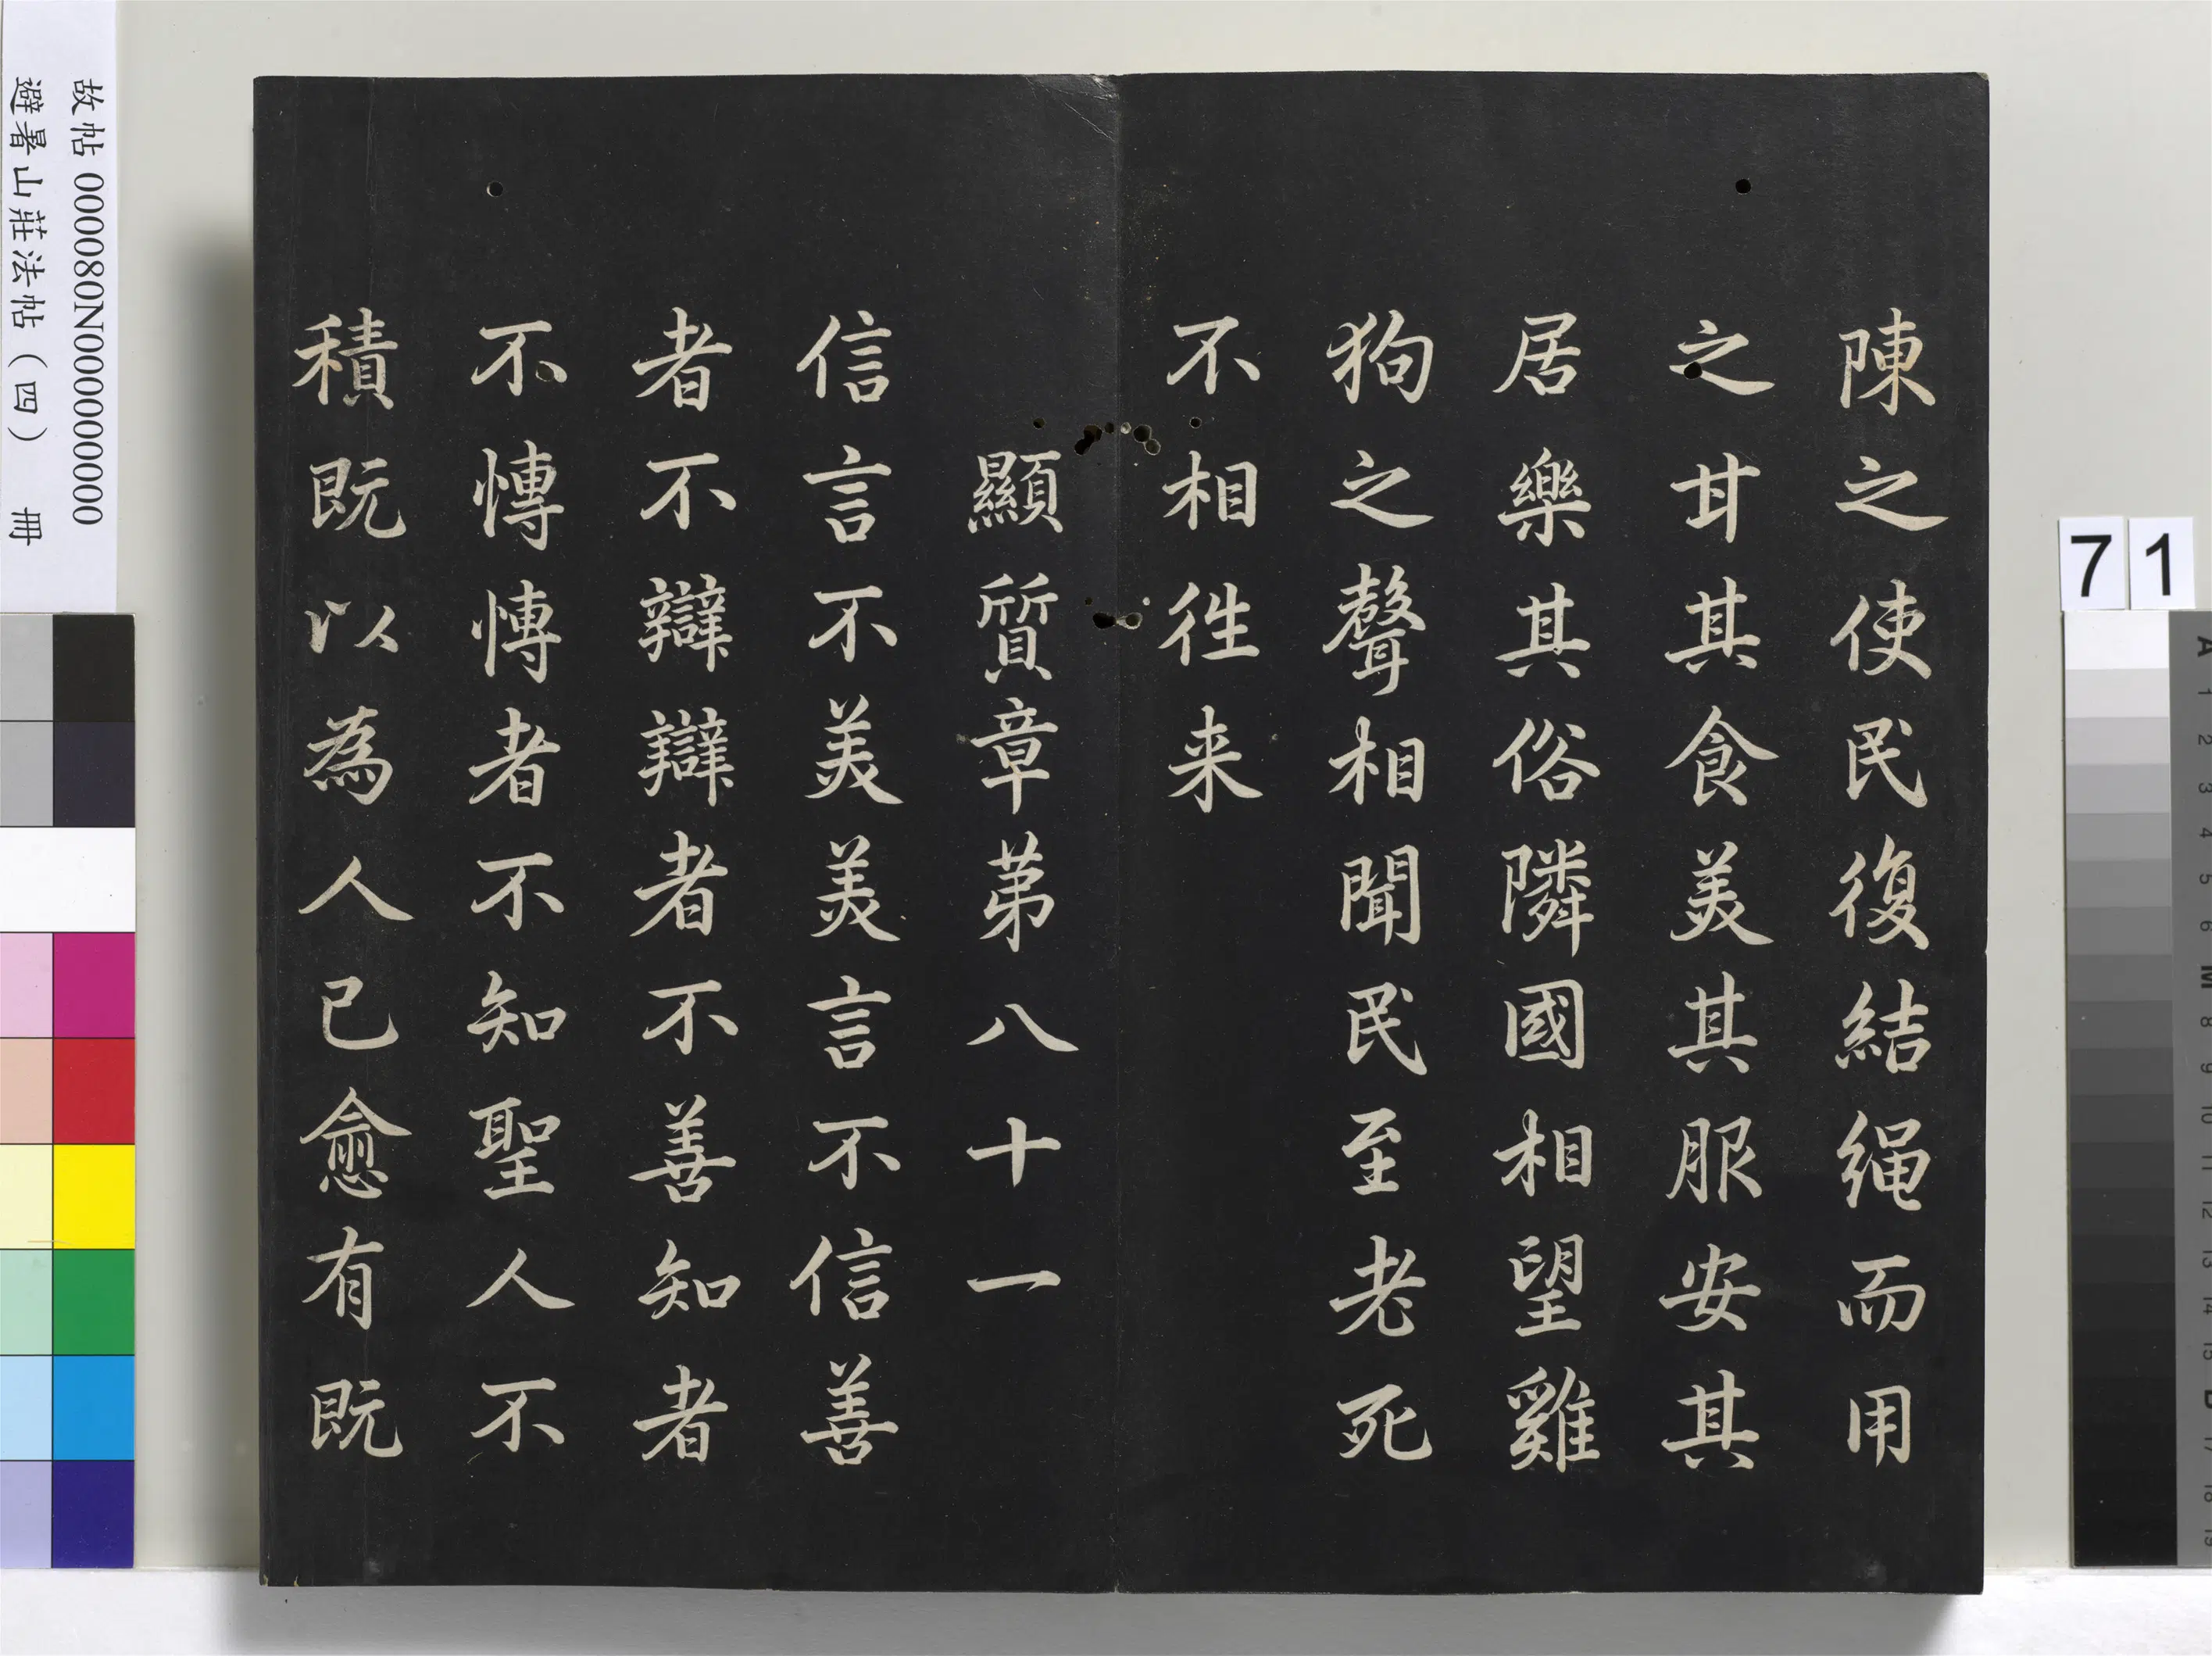 陳之使民復結繩而用
之甘其食美其服安其
居樂其俗隣國相望雞
狗之聲相聞民至老死
不相徃来
顯質章苐八十一
信言不美美言不信善
者不辯辯者不善知者
不愽愽者不知聖人不
積既以為人已愈有既
故帖 000080N000000000
避暑山莊法帖(四) 冊
71